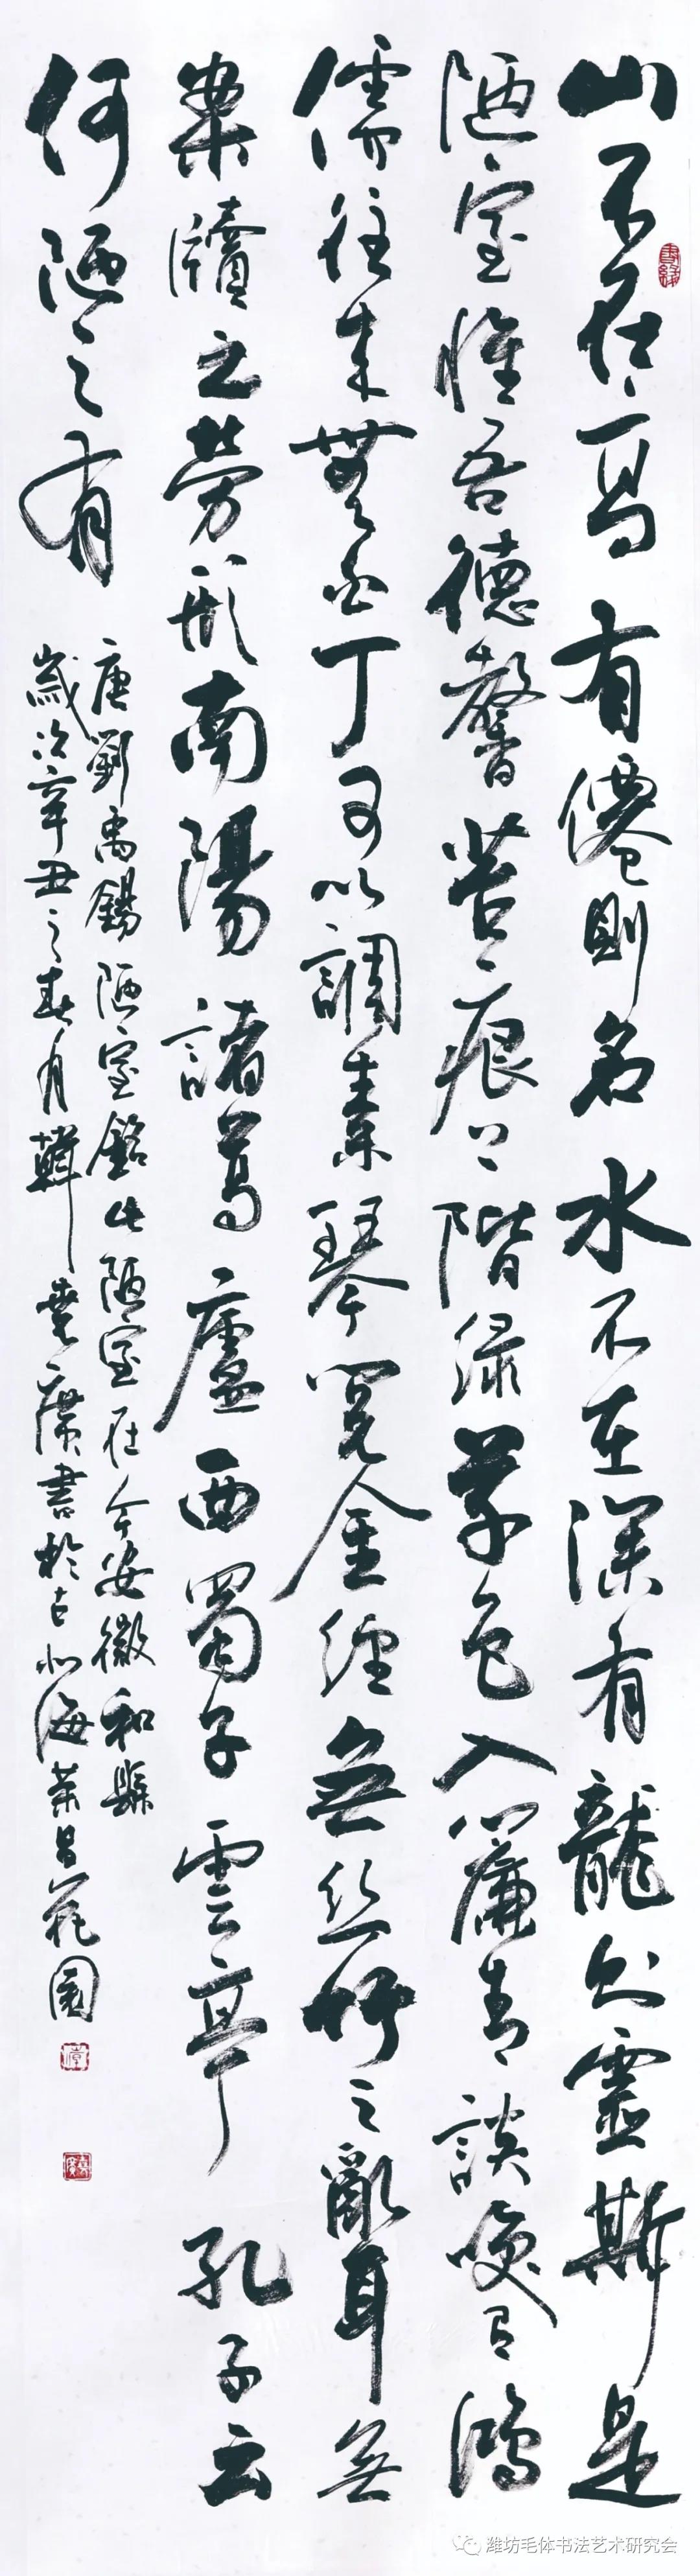 山不在高有僊則名水不在深有龍則靈斯是
陋室惟吾德馨苔痕上階绿草色入簾青談笑有鴻
儒往来無白丁可以調素琴閱金经無丝竹之亂耳無
案牘之勞形南陽諸葛廬西蜀子雲亭孔子云
何陋之有
唐劉禹錫陋室銘此陋室在今安徽和縣
歲次辛丑之春月韓堯廣書於古北海荣昌花園
潍坊毛体书法艺术研究会